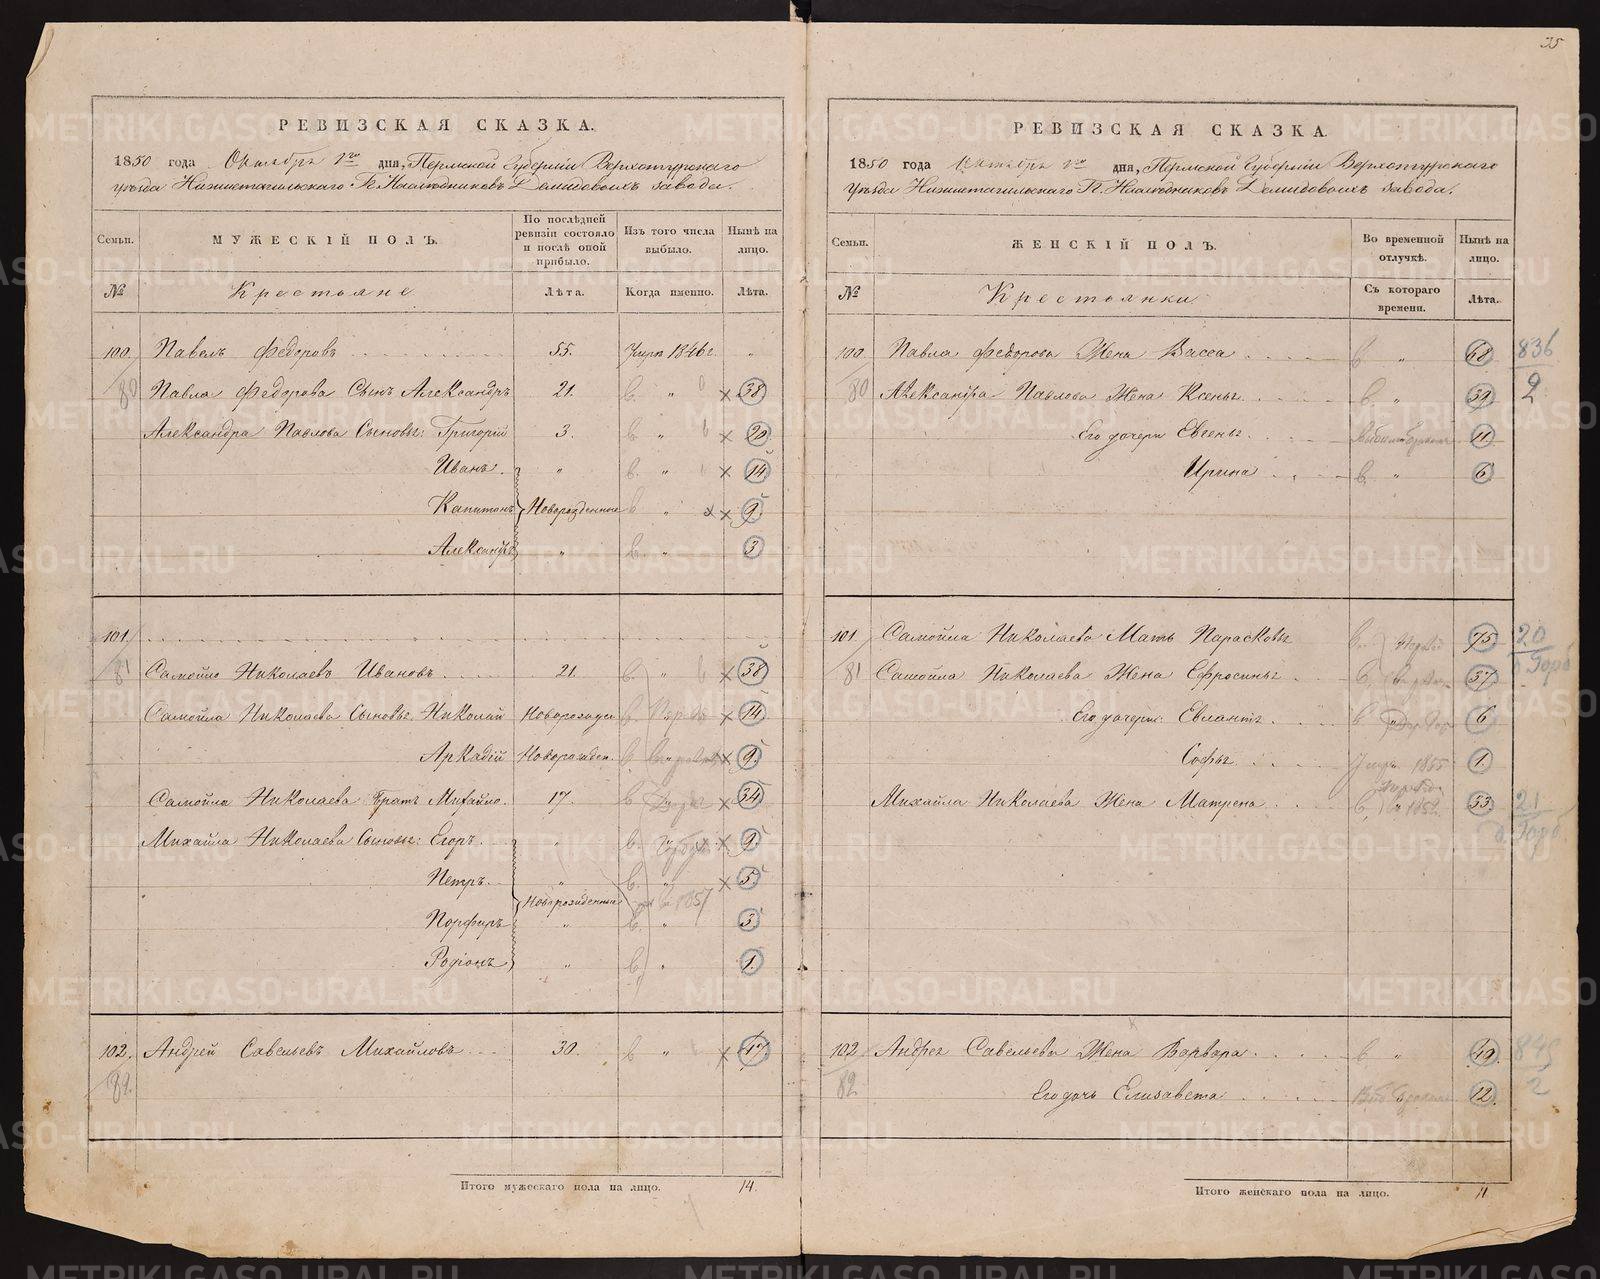 35
РЕВИЗСКАЯ СКАЗКА.
1850 года Октября 1го дня, Пермской Губернiи Верхотурскаго
уѣзда Нижнетагильскаго Гг. Наслѣдниковъ Демидовыхъ завода.
Семьи.
МУЖЕСКIЙ ПОЛЪ.
По послѣдней ревизiи состояло и послѣ оной прибыло.
Изъ того числа выбыло.
Нынѣ на лицо.
№ Крестьяне Лѣта. Когда именно. Лѣта.
100. Павелъ Федоровъ 55. Умре 1846 г. "
80 Павла Федорова Сынъ Александръ 21. в. " × 38
Александра Павлова Сыновья: Григорiй 3. в. " × 20
Иванъ. " в. " × 14
Капитонъ Новорожденные в " × 9.
Александръ " в. " 3
101.
81 Самойло Николаевъ Ивановъ 21. в. " × 38
Самойла Николаева Сыновья: Николай Новорожден в. × 14
Аркадiй Новорожден. в × 9.
Самойла Николаева Братъ Михайло. 17. в × 34
Михайла Николаева Сыновья: Егоръ. " в. × 9.
Петръ. " в. " × 5
Новорожденныя 1857
Порфиръ " в. " 3
Родiонъ " в. " 1.
102. Андрей Савельевъ Михайловъ 30. в " × 47
82.
Итого мужескаго пола на лицо. 14.
РЕВИЗСКАЯ СКАЗКА.
1850 года Октября 1го дня, Пермской Губернiи Верхотурскаго
уѣзда Нижнетагильскаго Гг. Наслѣдниковъ Демидовыхъ завода.
Семьи.
ЖЕНСКIЙ ПОЛЪ.
Во временной отлучкѣ.
Нынѣ на лицо.
№ Крестьянки Съ котораго времени. Лѣта.
100. Павла Федорова Жена Васса в " 68 836
80 Александра Павлова Жена Ксенья в " 39 2
Его дочери Евгенья 11
Ирина в. " 6
101. Самойла Николаева Мать Парасковья в. 75 20
81 Самойла Николаева Жена Ефросинья в. 37
Его дочери: Евланья в 6
Софья Умре 1855 1.
Михайла Николаева Жена Матрена в. 1852 33 21
102 Андрея Савельева Жена Варвара в " 49. 845
82 Его дочь Елизавета 12. 2
Итого женскаго пола на лицо. 11
METRIKI.GASO-URAL.RU